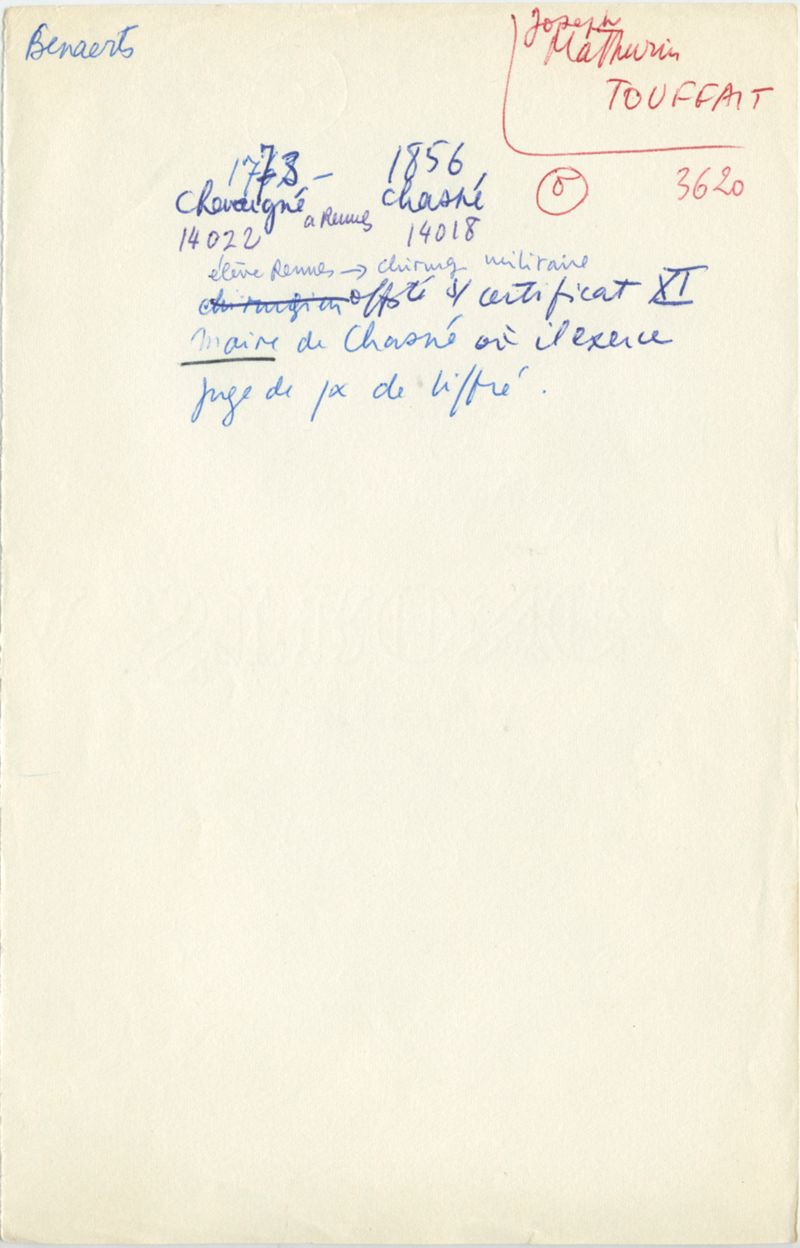 Benaerts
Joseph
Mathurin
TOUFFAIT
1773 – 1856
Chevaigné à Rennes Chasné
3620
14022 14018
élève Rennes → chirurg militaire
chirurgien off sté s/ certificat XI
Maire de Chasné où il exerce
juge de px de Liffré.